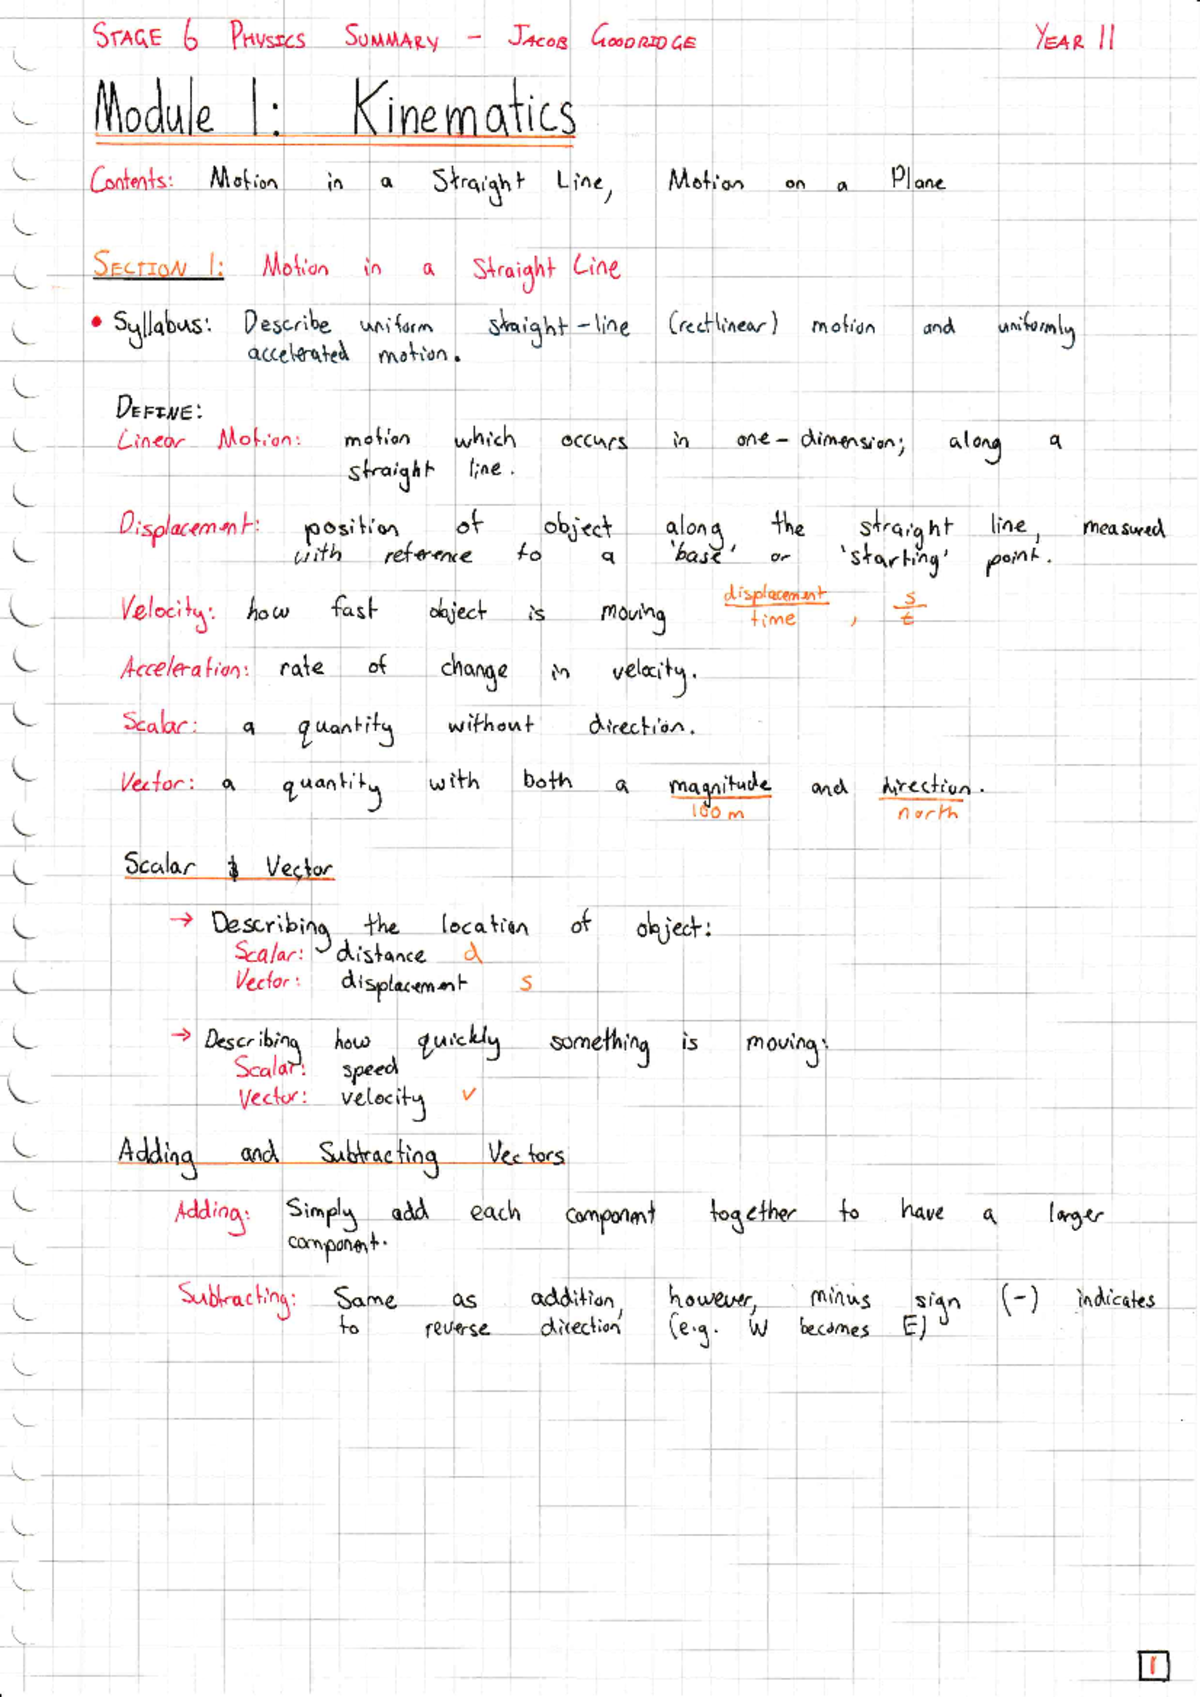 STAGE 6 PHYSICS SUMMARY - JACOB GOODRIDGE YEAR 11
Module 1: Kinematics
Contents: Motion in a Straight Line, Motion on a Plane
SECTION 1: Motion in a Straight Line
• Syllabus: Describe uniform staight-line (rectlinear) motion and uniformly
accelerated motion.
DEFINE:
Linear Motion: motion which occurs in one-dimension; along a
straight line.
Displacement: position of object along the straight line, measured
with reference to a 'base' or 'starting' point.
Velocity: how fast object is moving displacement/time, s/t
Acceleration: rate of change in velocity.
Scalar: a quantity without direction.
Vector: a quantity with both a magnitude and direction.
100m north
Scalar & Vector
→ Describing the location of object:
Scalar: distance d
Vector: displacement s
→ Describing how quickly something is moving:
Scalar: speed
Vector: velocity v
Adding and Subtracting Vectors
Adding: Simply add each component together to have a larger
component.
Subtracting: Same as addition, however, minus sign (-) indicates
to reverse direction (e.g. W becomes E)
1